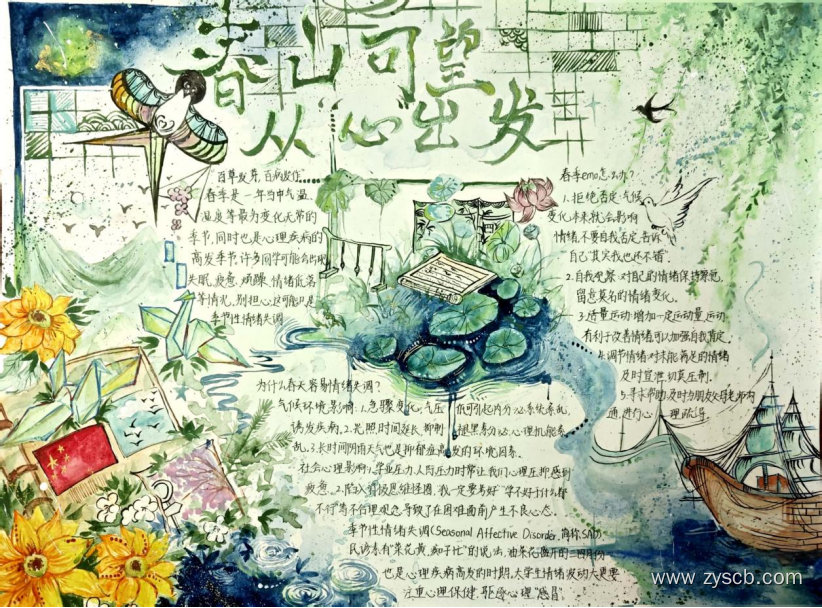 春山可望
从“心”出发
百草发芽,百病发作
春季是一年当中气温
温度等最为变化无常的
季节,同时也是心理疾病的
高发季节许多同学可能会出现
失眠,疲惫,烦躁,情绪低落
等情况,别担心这可能只是
季节性情绪失调
春季emo怎么办?
1.拒绝否定:气候
变化本来就会影响
情绪,不要自我否定,告诉
自己“其实我也还不错”
2.自我觉察:对自己的情绪保持警觉,
留意莫名的情绪变化。
3.适量运动:增加一定运动量,运动
有利于改善情绪可以加强自我肯定。
4.调节情绪:对未能满足的情绪
及时宣泄,切莫压制。
5.寻求帮助:及时与朋友父母老师沟
通,进行心理疏导。
为什么春天容易情绪失调?
气候环境影响:1.急骤变化,气压低可引起内分泌系统紊乱,
诱发疾病。2.光照时间延长,抑制褪黑素分泌,心理机能紊
乱。3.长时间阴雨天气也是抑郁症高发的环境因素。
社会心理影响:1.学业压力、人际压力时常让我们心理压抑感到
疲惫。2.陷入消极思维怪圈“我一定要考好”“学不好干什么都
不行”等不合理观念,导致了在困难面前产生不良心态。
季节性情绪失调(Seasonal Affective Disorder,简称SAD)
民谚素有“菜花黄,痴子忙”的说法,油菜花盛开的三四月份
也是心理疾病高发的时期,大学生情绪波动大更要
注重心理保健,驱逐心理“感冒”
www.zyscb.com